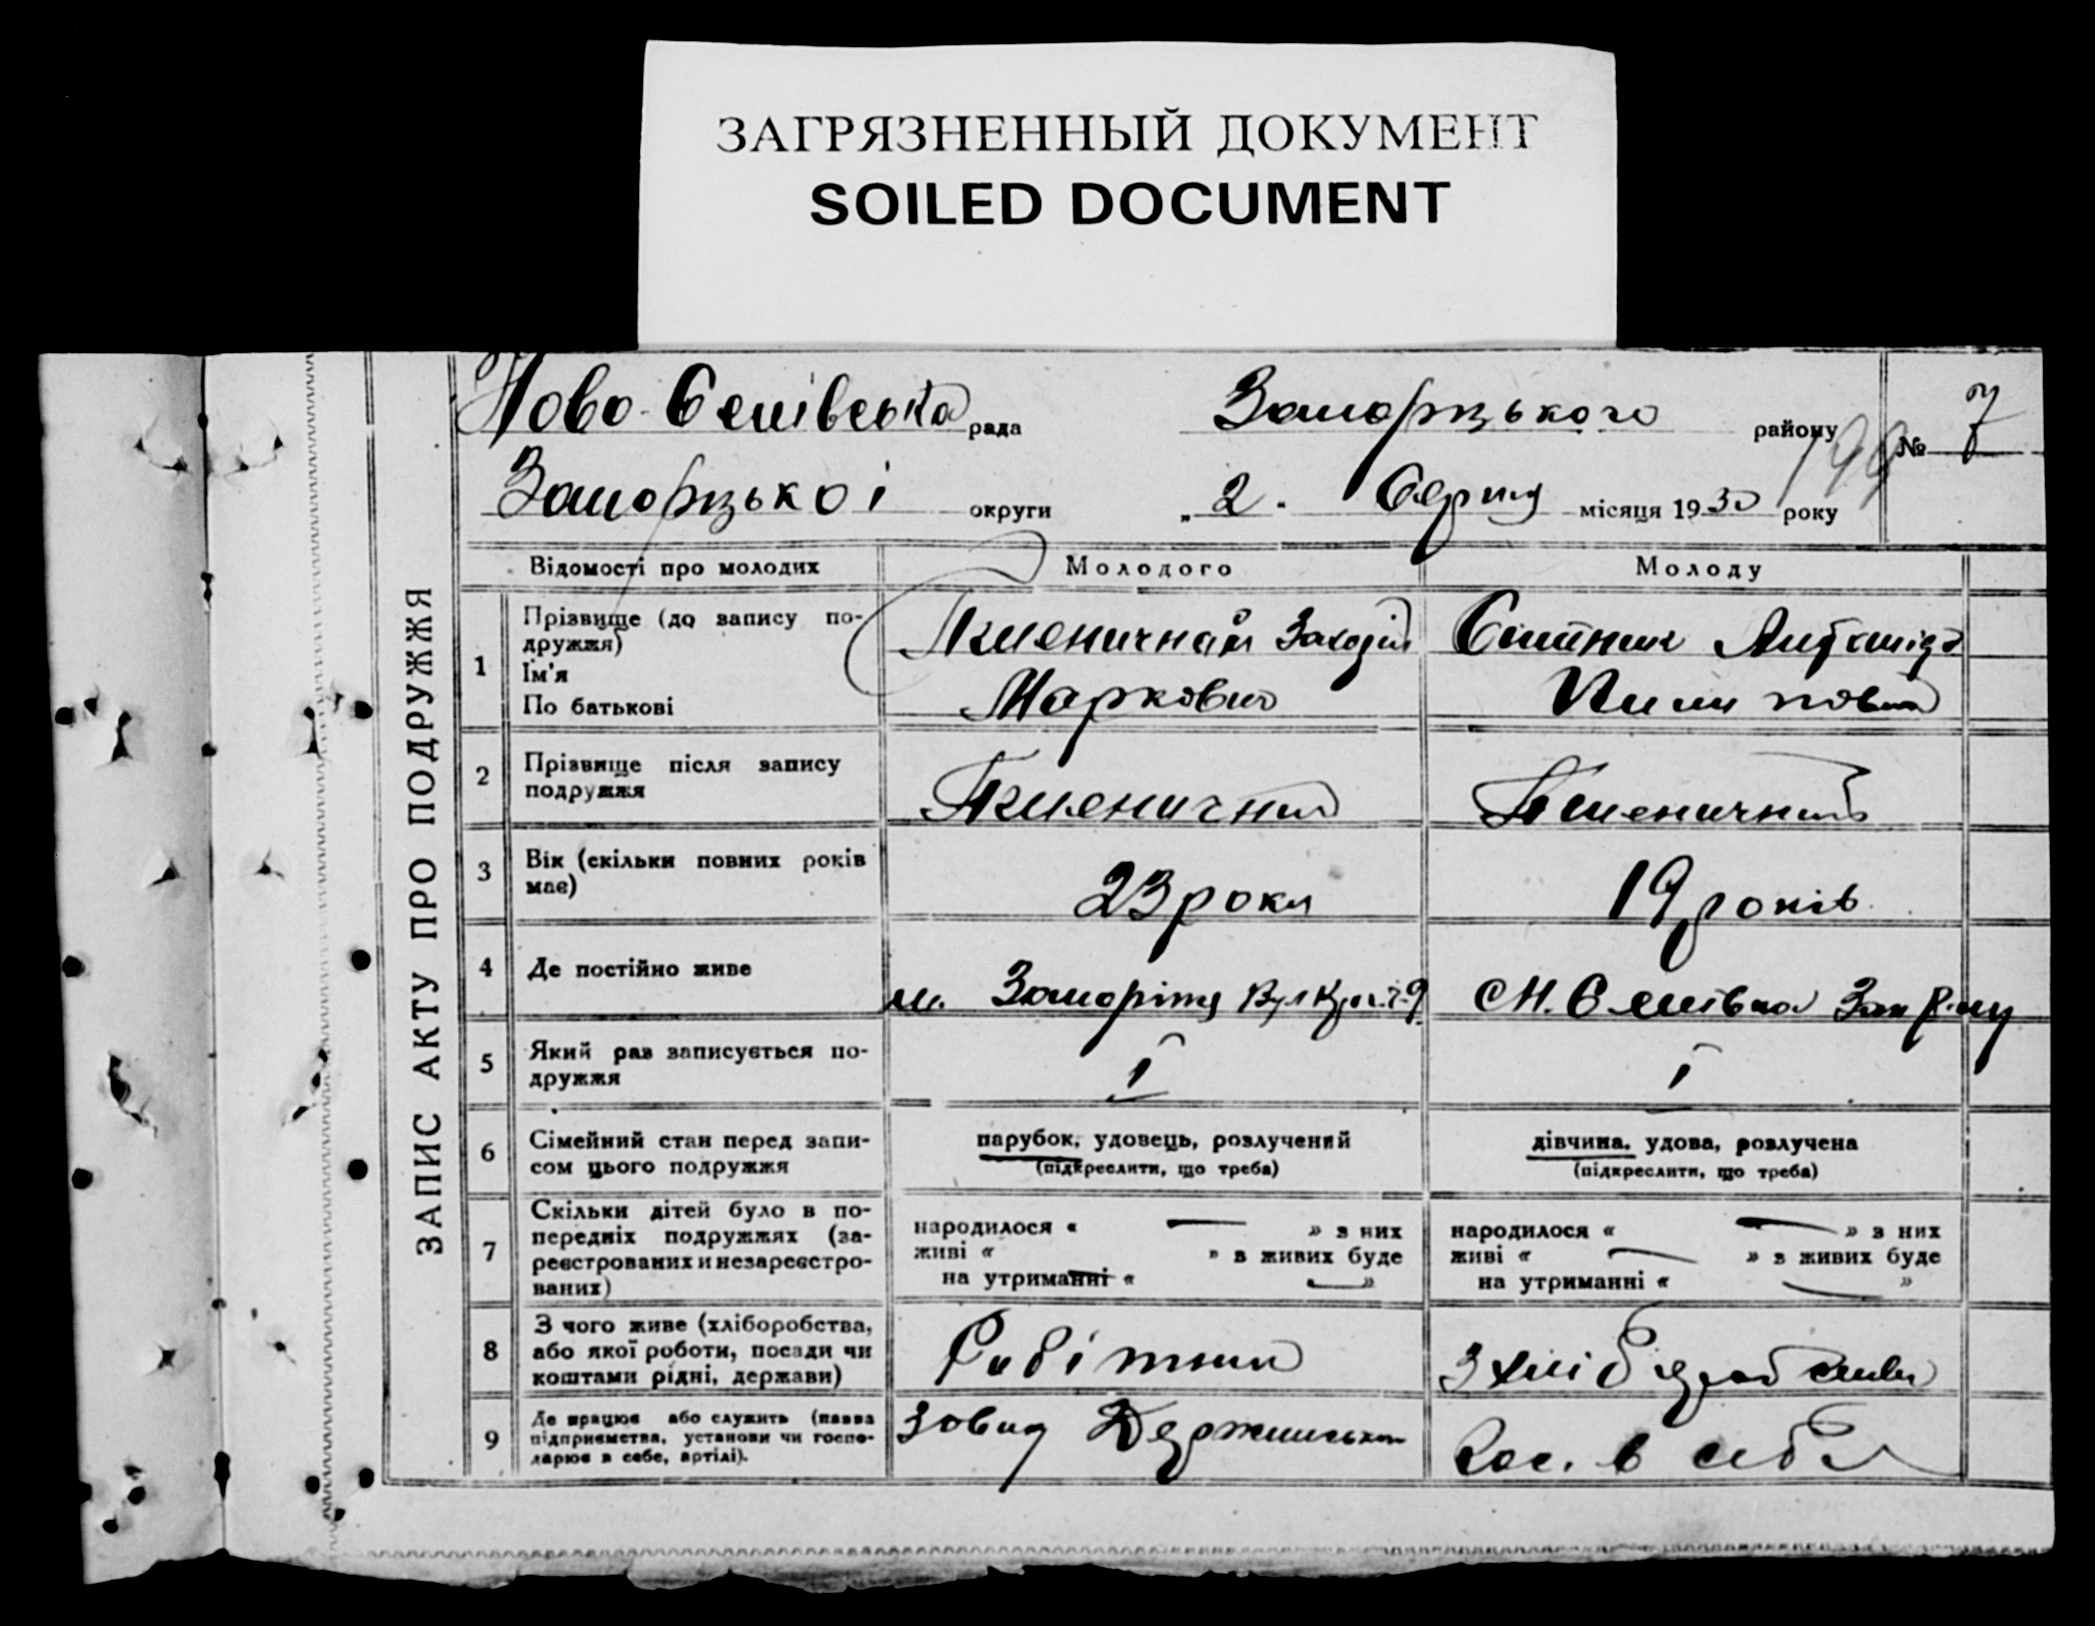 ЗАГРЯЗНЕННЫЙ ДОКУМЕНТ
SOILED DOCUMENT
Ново-Семівська рада Запорізького району № 7
199
Запорізької округи „ 2 . Серпня місяця 1930 року
ЗАПИС АКТУ ПРО ПОДРУЖЖЯ
Відомості про молодих Молодого Молоду
1 Прізвище (до запису по-
дружжя)
Ім'я
По батькові
Пшеничний
Маркович
Пилиповна
2 Прізвище після запису
подружжя
Пшеничний Пшеничний
3 Вік (скільки повних років
має)
23 роки 19 років
4 Де постійно живе м. Запоріжжя С Н. Семівка Зап р-ну
5 Який раз записується по-
дружжя
I I
6 Сімейний стан перед запи-
сом цього подружжя
парубок, удовець, розлучений
(підкреслити, що треба)
дівчина, удова, розлучена
(підкреслити, що треба)
7 Скільки дітей було в по-
передніх подружжях (за-
реєстрованих и незареєстро-
ваних)
народилося « — » з них
живі « » в живих буде
на утриманні « — »
народилося « — » з них
живі « — » в живих буде
на утриманні « — »
8 З чого живе (хліборобства,
або якої роботи, посади чи
коштами рідні, держави)
Робітник
З хлібороб
9 Де працює або служить (назва
підприємства, установи чи госпо-
дарює в себе, артілі).
завод
Гос. в себе